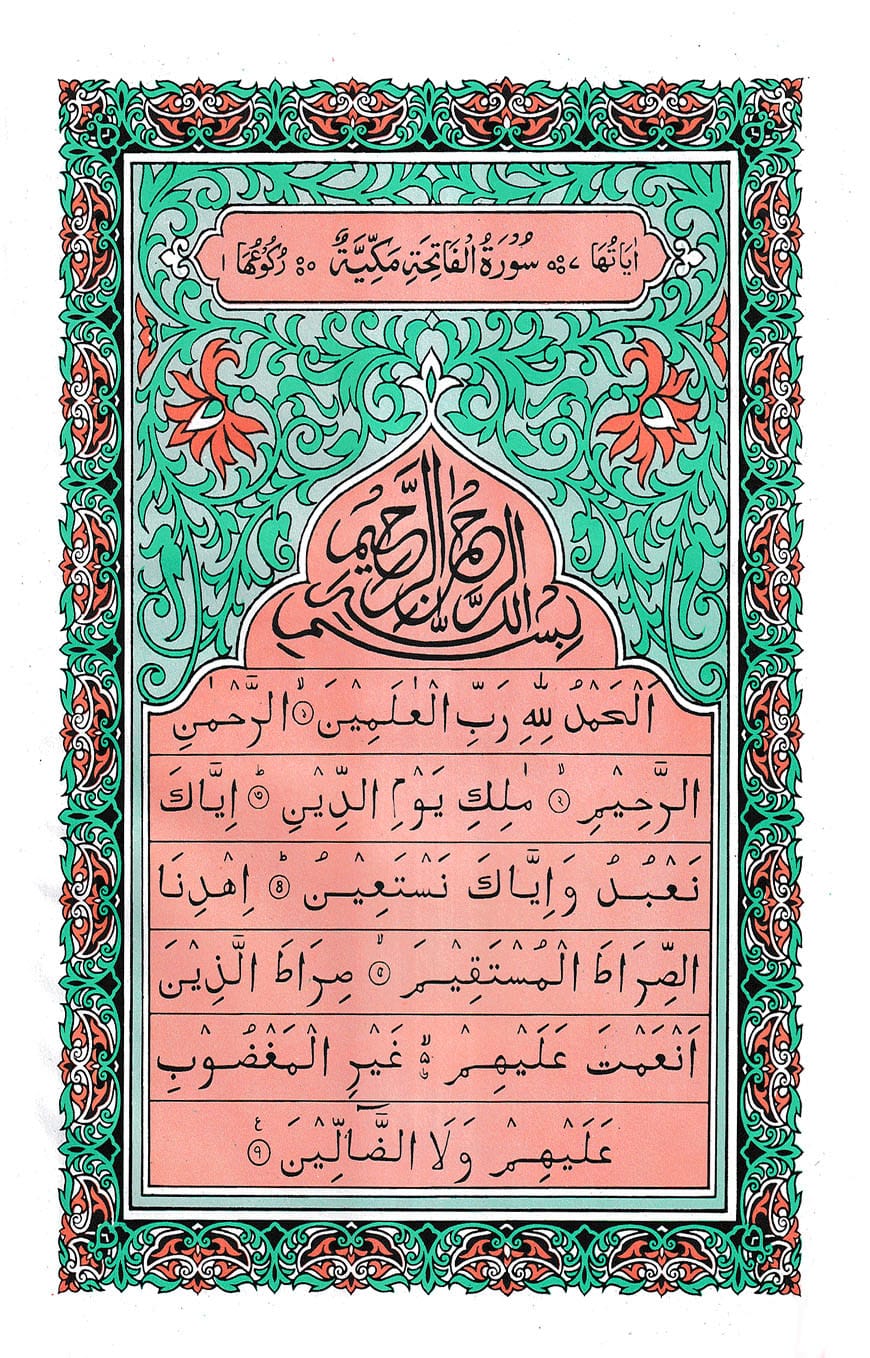 اٰيَاتُهَا ٧ سُوْرَةُ الْفَاتِحَةِ مَكِّيَّةٌ رُكُوْعُهَا ١
بِسْمِ اللّٰهِ الرَّحْمٰنِ الرَّحِيْمِ
اَلْحَمْدُ لِلّٰهِ رَبِّ الْعٰلَمِيْنَۙ۝١ الرَّحْمٰنِ
الرَّحِيْمِۙ۝٢ مٰلِكِ يَوْمِ الدِّيْنِؕ۝٣ اِيَّاكَ
نَعْبُدُ وَاِيَّاكَ نَسْتَعِيْنُؕ۝۴ اِهْدِنَا
الصِّرَاطَ الْمُسْتَقِيْمَۙ۝۵ صِرَاطَ الَّذِيْنَ
اَنْعَمْتَ عَلَيْهِمْ ۙ۵ غَيْرِ الْمَغْضُوْبِ
عَلَيْهِمْ وَلَا الضَّآلِّيْنَ۝